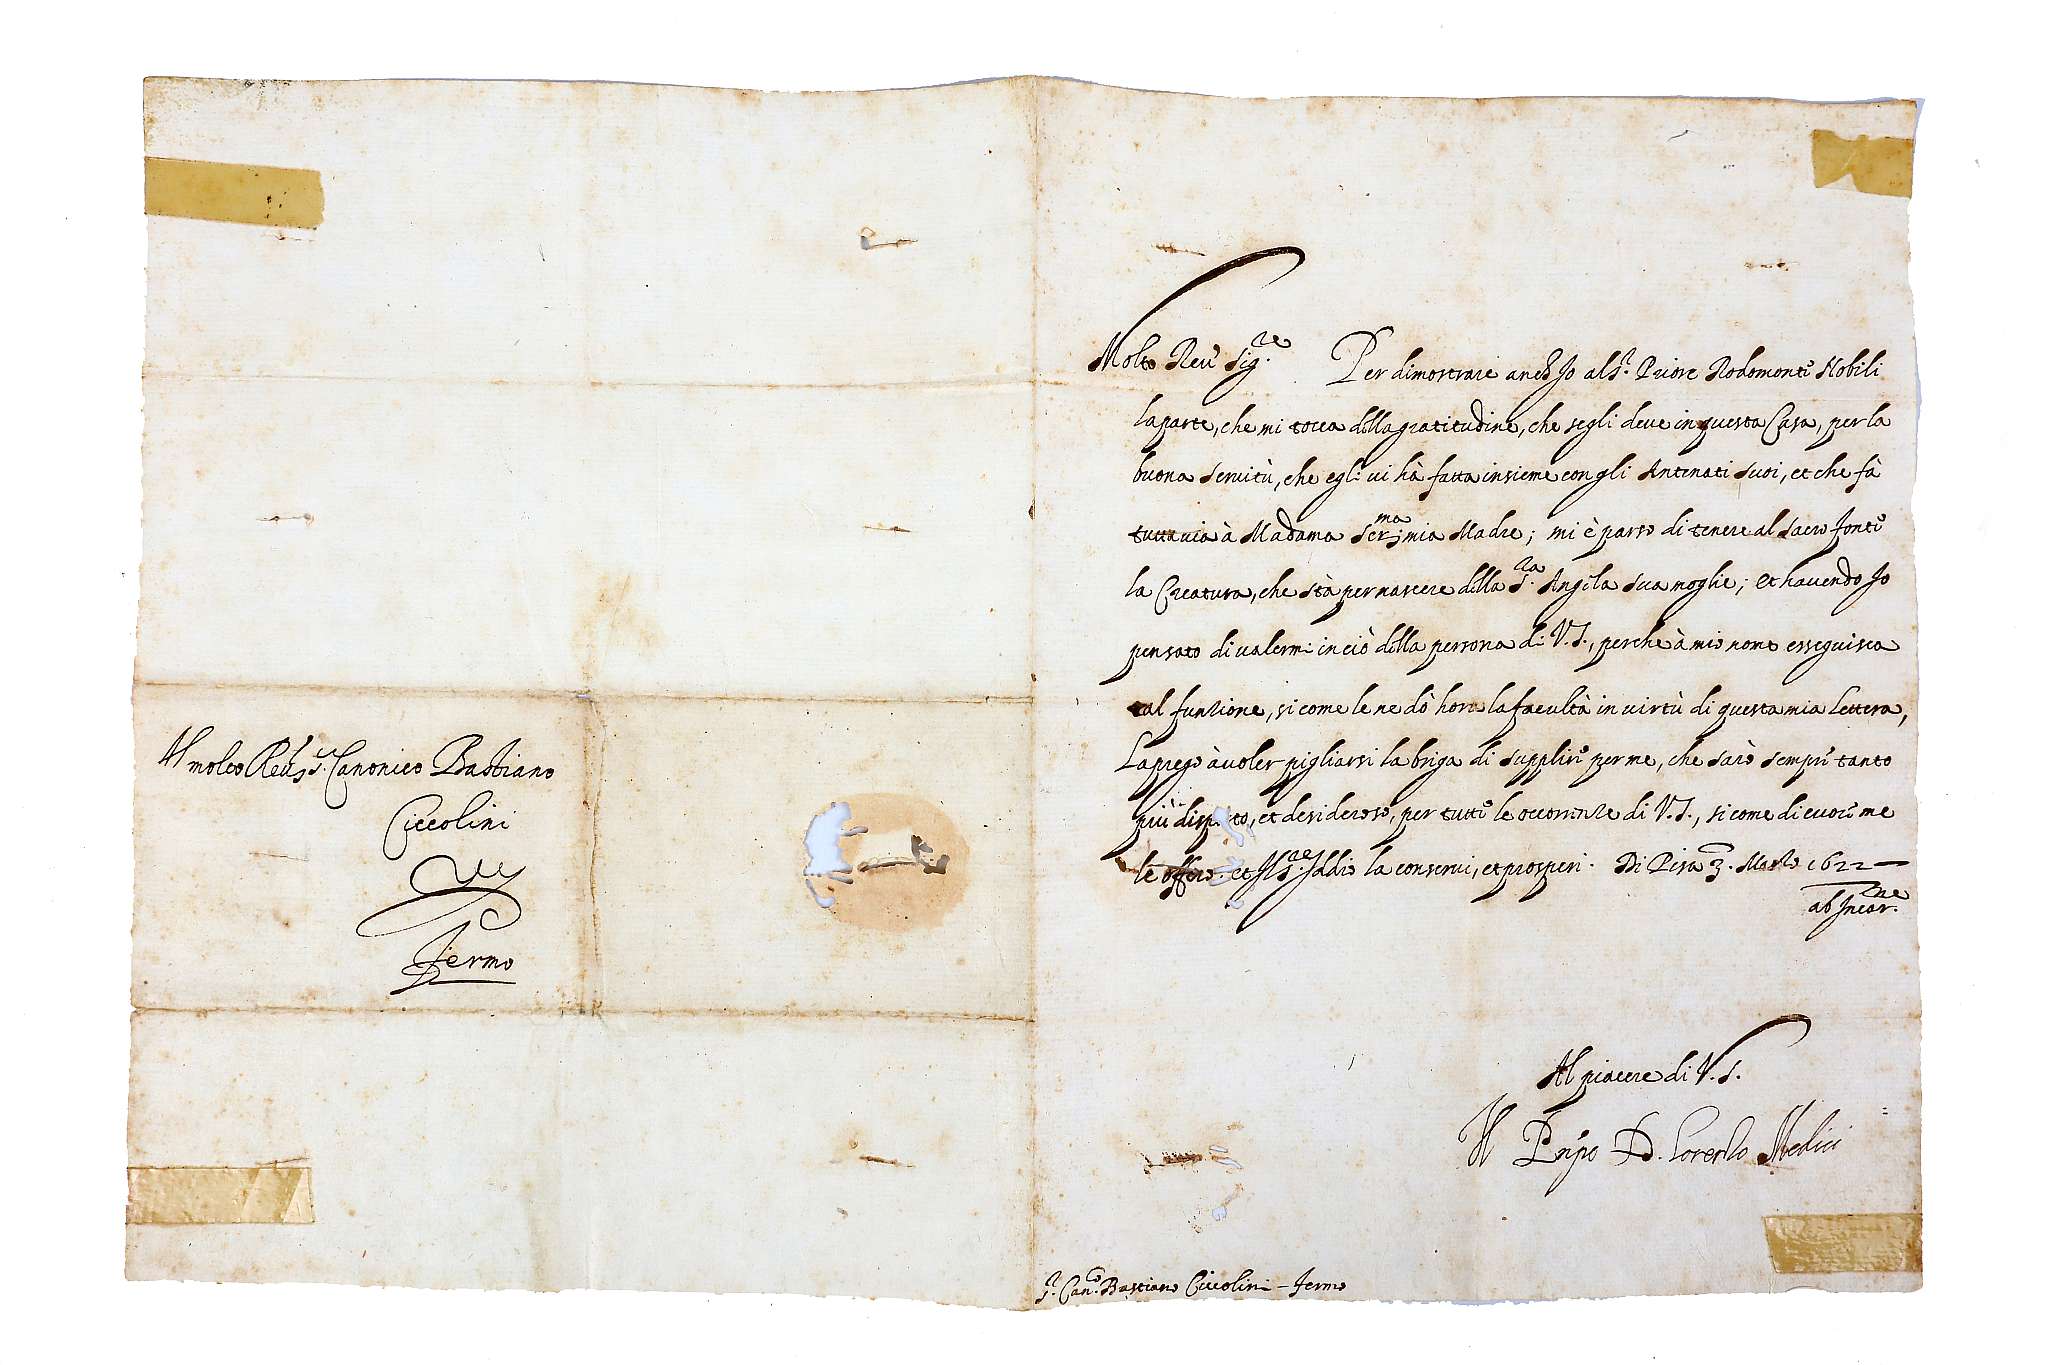 Al molto Rev. S. Canonico Bastiano
Ciccolini
Fermo
Molto Rev. Sig.re Per dimostrare anch Io al S.r Priore Rodomonte Nobili
la parte, che mi tocca della gratitudine, che segli deve in questa Casa, per la
buona servitù, che egli vi hà fatta insieme con gli Antenati suoi, et che fà
tuttavia à Madama Ser.ma mia Madre; mi è parso di tenere al sacro fonte
la Creatura, che stà per nascere della S.ra Angela sua moglie; et havendo Io
pensato di valermi in ciò della persona di V.S., perche à mio nome esseguisca
tal funzione, si come le ne dò hora la facultà in virtù di questa mia lettera,
La prego à voler pigliarsi la briga di supplire per me, che sarò sempre tanto
più disposto, et desideroso, per tutte le occorrenze di V.S., si come di cuore me
le offero. et Il S.re Iddio la conservi, et prosperi. Di Pisa 3. Marzo 1622
ab Incar.ne
Al piacere di V.S.
Il Pnpe D. Lorenzo Medici
S.r Can.co Bastiano Ciccolini - Fermo